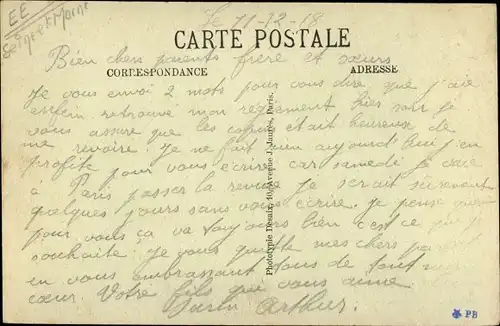 EE
Seine et Marne
Le 11-12-18
CARTE POSTALE
Bien chers parents frère et sœurs
CORRESPONDANCE
ADRESSE
Je vous envoi 2 mots pour vous dire que j'aie
enfin retrouvé mon régiment hier soir je
vous assure que les copins était heureux de
me revoire. Je ne fait rien aujourd'hui j'en
profite pour vous écrire car samedi je vais
a Paris passer la revue je serait sûrement
quelques jours sans vous écrire. je pense que
pour vous ça va toujours bien c'est ce que je
souhaite. Je vous quitte mes chers
en vous embrassant tous de tout mon
cœur. Votre fils qui vous aime
Arthur.
Phototypie Désaix, 40, Avenue J. Jaurès, Paris.
PB